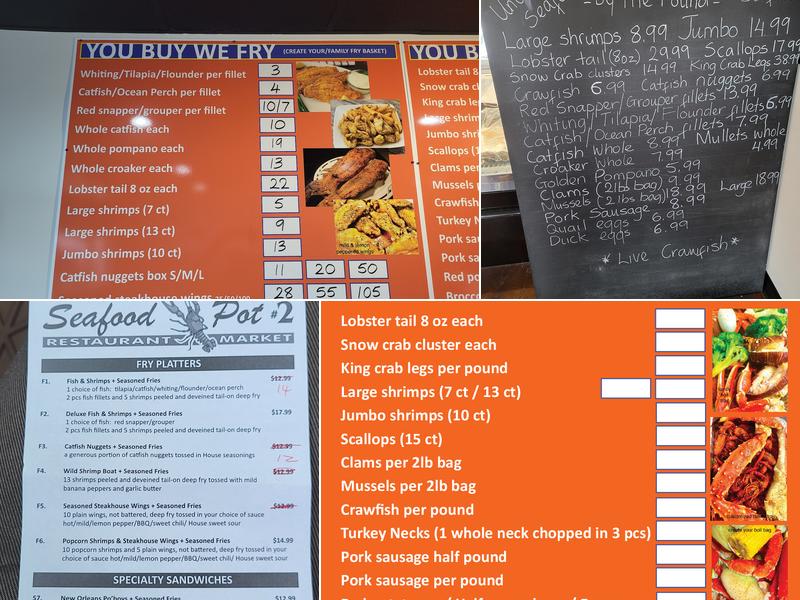 YOU BUY WE FRY (CREATE YOUR/FAMILY FRY BASKET)
Whiting/Tilapia/Flounder per fillet 3
Catfish/Ocean Perch per fillet 4
Red snapper/grouper per fillet 10/7
Whole catfish each 10
Whole pompano each 19
Whole croaker each 13
Lobster tail 8 oz each 22
Large shrimps (7 ct) 5
Large shrimps (13 ct) 9
Jumbo shrimps (10 ct) 13
Catfish nuggets box S/M/L 11 20 50
Seasoned steakhouse wings 25/50/100 28 55 105
mild & lemon
peppered wings
YOU B
Lobster tail 8
Snow crab cl
King crab le
Large shrim
Jumbo shri
Scallops (1
Clams per
Mussels p
Crawfish
Turkey N
Pork sa
Pork sau
Red po
Brocc
Seafood -by The Pound-
Large shrimps 8.99 Jumbo 14.99
Lobster tail (8oz) 29.99 Scallops 17.99
Snow Crab clusters 14.99 King Crab Legs 38.99
Crawfish 6.99 Catfish nuggets 6.99
Red Snapper/Grouper fillets 13.99
Whiting/Tilapia/Flounder fillets 6.99
Catfish/Ocean Perch fillets 7.99
Catfish Whole 8.99 Mullets whole
4.99
Croaker Whole 7.99
Golden Pompano 5.99
Clams (2lbs bag) 9.99
Mussels (2lbs bag) 18.99 Large 18.99
Pork Sausage 8.99
Quail eggs 6.99
Duck eggs 6.99
*Live Crawfish*
Seafood Pot #2
RESTAURANT MARKET
FRY PLATTERS
F1. Fish & Shrimps + Seasoned Fries $12.99
1 choice of fish: tilapia/catfish/whiting/flounder/ocean perch 14
2 pcs fish fillets and 5 shrimps peeled and deveined tail-on deep fry
F2. Deluxe Fish & Shrimps + Seasoned Fries $17.99
1 choice of fish: red snapper/grouper
2 pcs fish fillets and 5 shrimps peeled and deveined tail-on deep fry
F3. Catfish Nuggets + Seasoned Fries $12.99
a generous portion of catfish nuggets tossed in House seasonings 12
F4. Wild Shrimp Boat + Seasoned Fries $12.99
13 shrimps peeled and deveined tail-on deep fry tossed with mild
banana peppers and garlic butter
F5. Seasoned Steakhouse Wings + Seasoned Fries $12.99
10 plain wings, not battered, deep fry tossed in your choice of sauce
hot/mild/lemon pepper/BBQ/sweet chili/ House sweet sour
F6. Popcorn Shrimps & Steakhouse Wings + Seasoned Fries $14.99
10 popcorn shrimps and 5 plain wings, not battered, deep fry tossed in your
choice of sauce hot/mild/lemon pepper/BBQ/sweet chili/ House sweet sour
SPECIALTY SANDWICHES
S7. New Orleans Po'boys + Seasoned Fries $12.99
Lobster tail 8 oz each
Snow crab cluster each
King crab legs per pound
Large shrimps (7 ct / 13 ct)
Jumbo shrimps (10 ct)
Scallops (15 ct)
Clams per 2lb bag
Mussels per 2lb bag
Crawfish per pound
Turkey Necks (1 whole neck chopped in 3 pcs)
Pork sausage half pound
Pork sausage per pound
create your boil bag